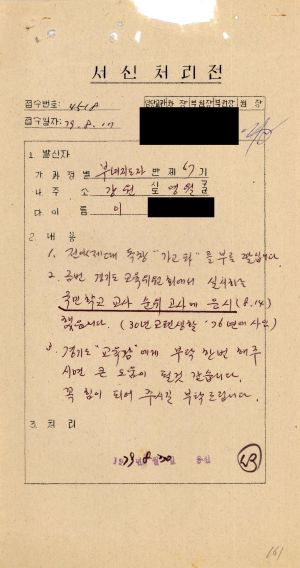 서신처리전
접수번호: 4518
접수일자: 79. 8. 17
1. 발신자
가 과정별 부녀지도자 반 제 67 기
나 주 소 강원 도 영월 군
다 이 름 이
2. 내 용
1. 전에 독창 "가고파"를 부른
2. 금번 경기도 교육위원회에서 실시하는
국민학교 교사 순위고사에 응시 (8.14)
했습니다. (30년 교편생활 '76년에 사임)
3. 경기도 "교육감"에게 부탁 한번 해주
시면 큰 도움이 될것 같습니다.
꼭 힘이 되어 주시길 부탁드립니다.
3. 처 리
1979년 8월 20일
161